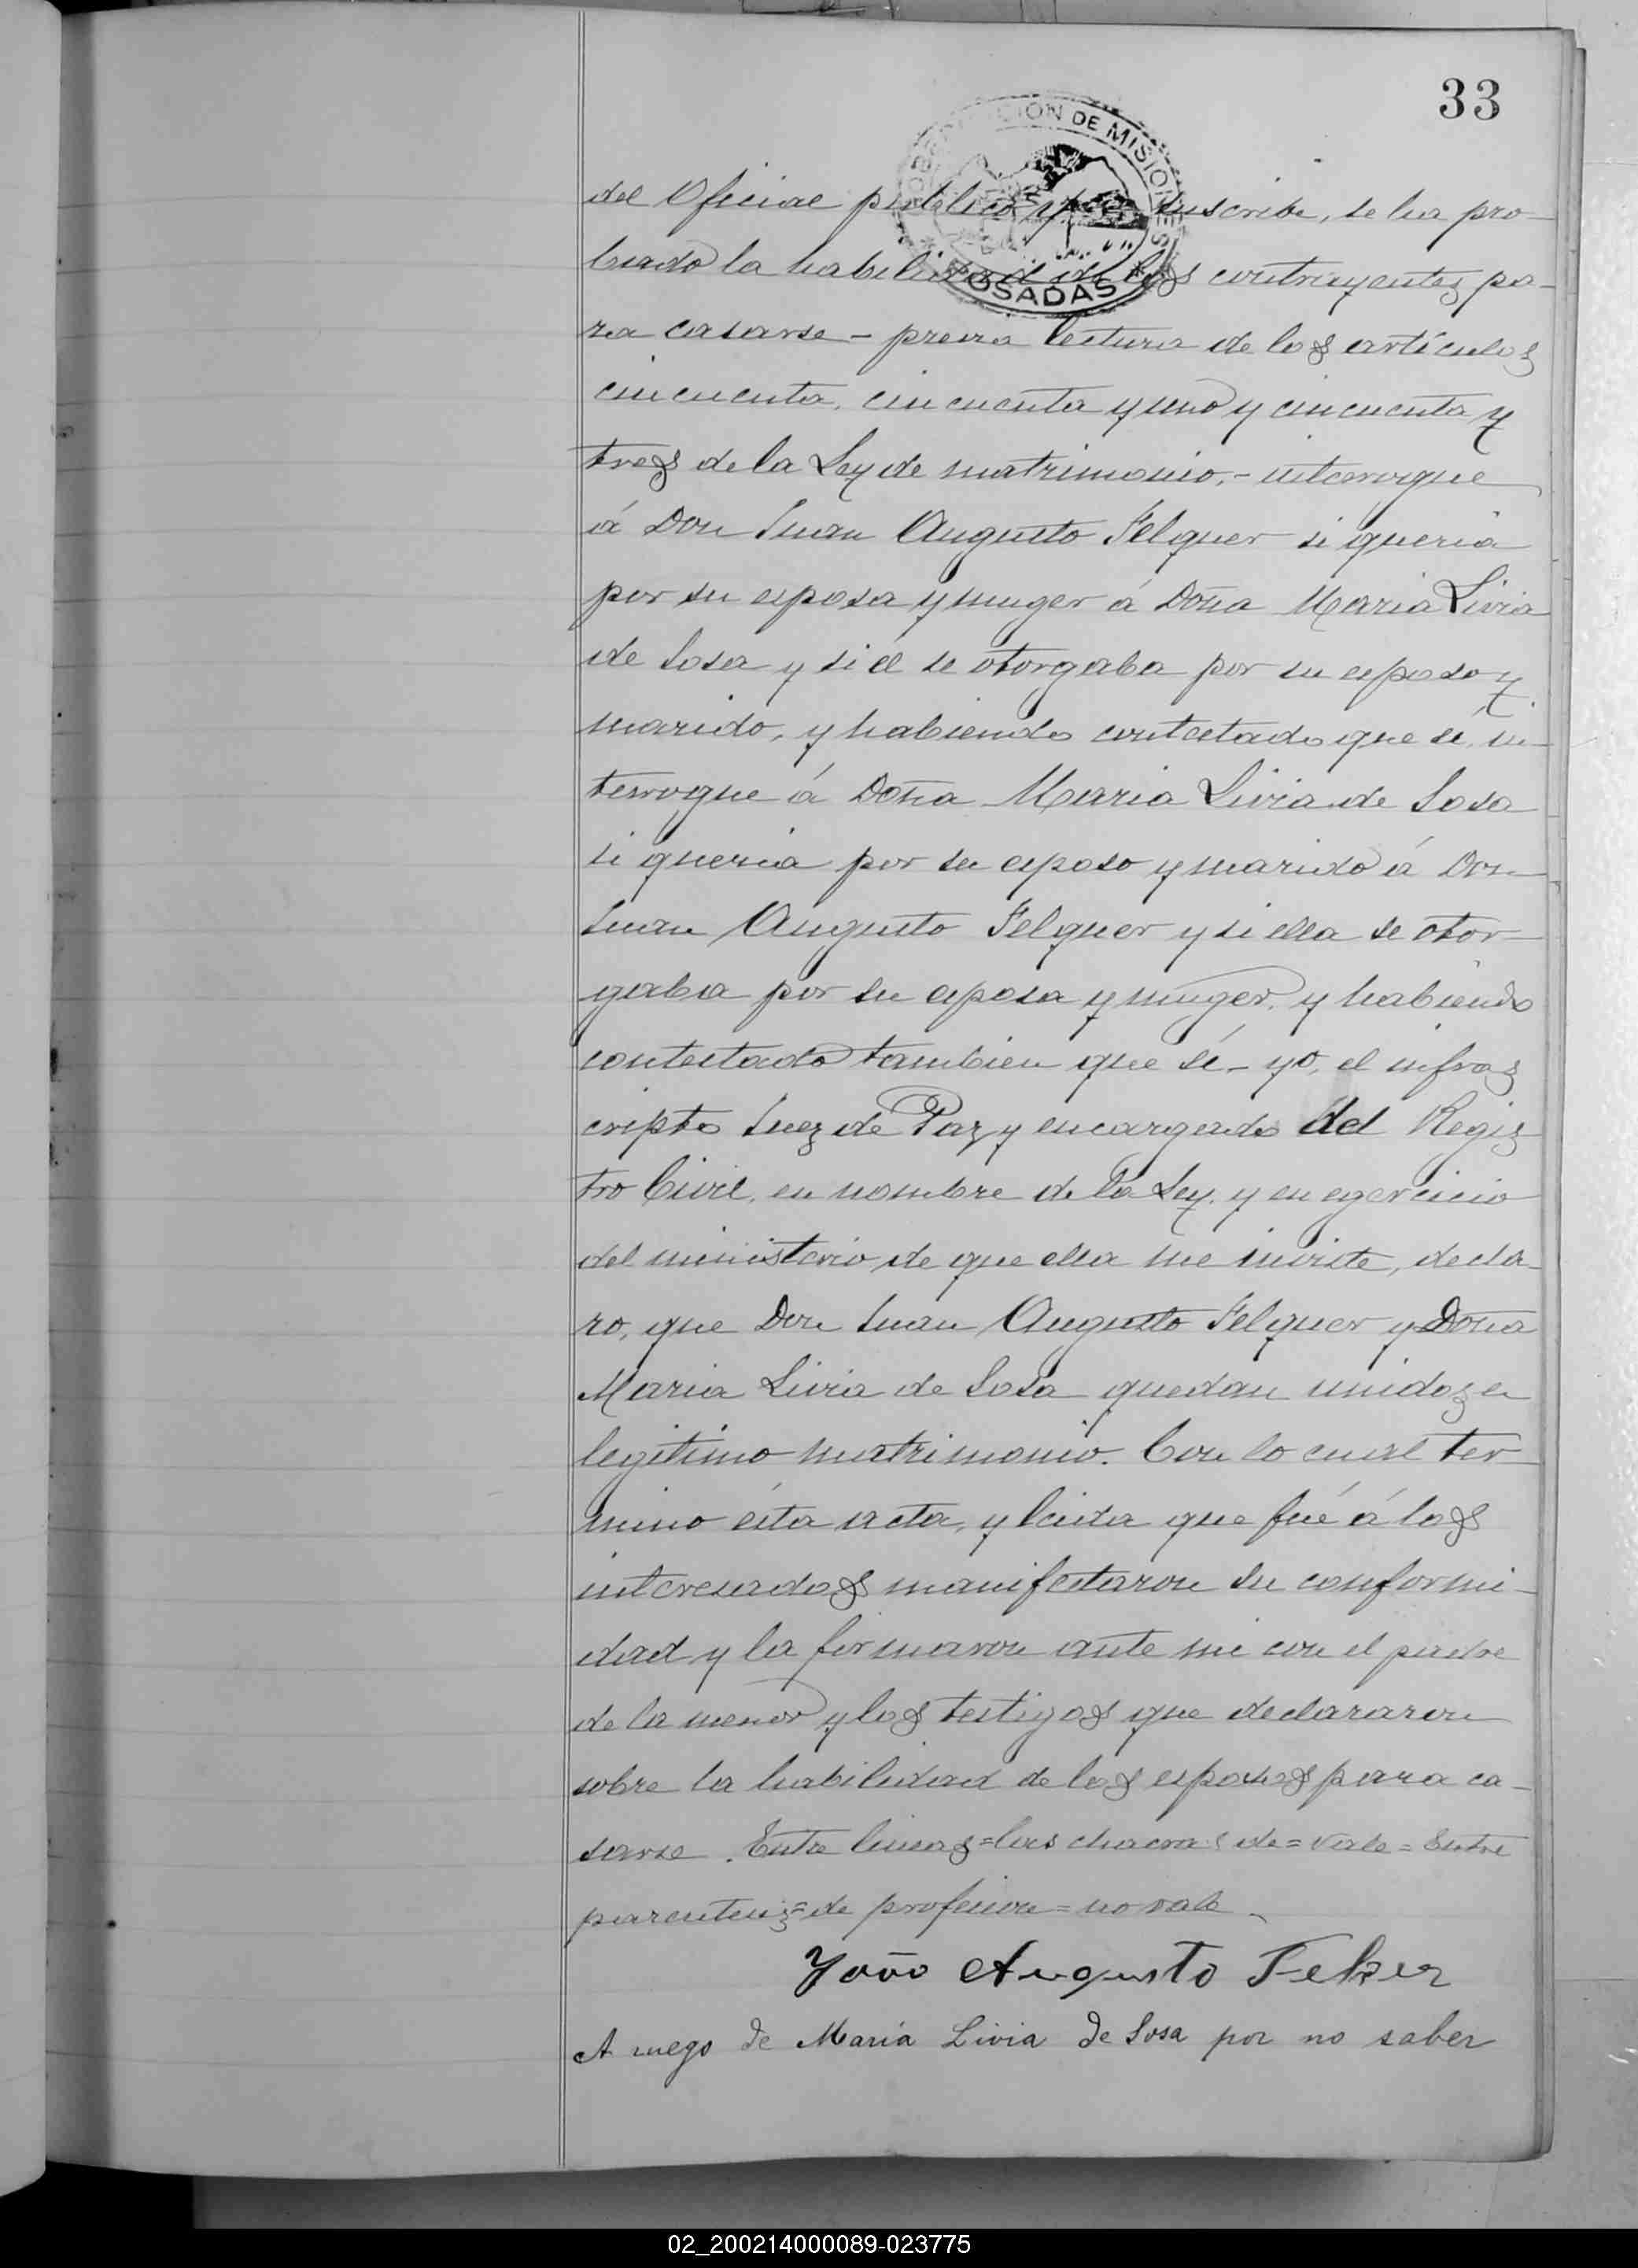 33
GOBERNACION DE MISIONES
* POSADAS *
del Oficial publico q. suscribe, se ha pro-
bado la habilidad de los contrayentes pa-
ra casarse - previa lectura de los artículos
cincuenta, cincuenta y uno y cincuenta y
tres de la Ley de matrimonio, - interrogue
á Don Juan Augusto Felquer si queria
por su esposa y muger á Doña Maria Livia
de Sosa y si él se otorgaba por su esposo y
marido, y habiendo contestado que sí, in-
terrogue á Doña Maria Livia de Sosa
si queria por su esposo y marido á Don
Juan Augusto Felquer y si ella se otor-
gaba por su esposa y muger, y habiendo
contestado tambien que sí - yo, el infras
cripto Juez de Paz y encargado del Regis
tro Civil, en nombre de la Ley, y en egercicio
del ministerio de que ella me inviste, decla-
ro, que Don Juan Augusto Felquer y Doña
Maria Livia de Sosa quedan unidos en
legitimo matrimonio. Con lo cual ter-
mino ésta acta, y leida que fué á los
interesados manifestaron su conformi-
dad y la firmaron ante mi con el padre
de la menor y los testigos que declararon
sobre la habilidad de los esposos para ca-
sarse. Entre lineas = las chacras de = vale = Entre
parentesis = de profesion = no vale
João Augusto Felker
A ruego de Maria Livia de Sosa por no saber
02_200214000089-023775